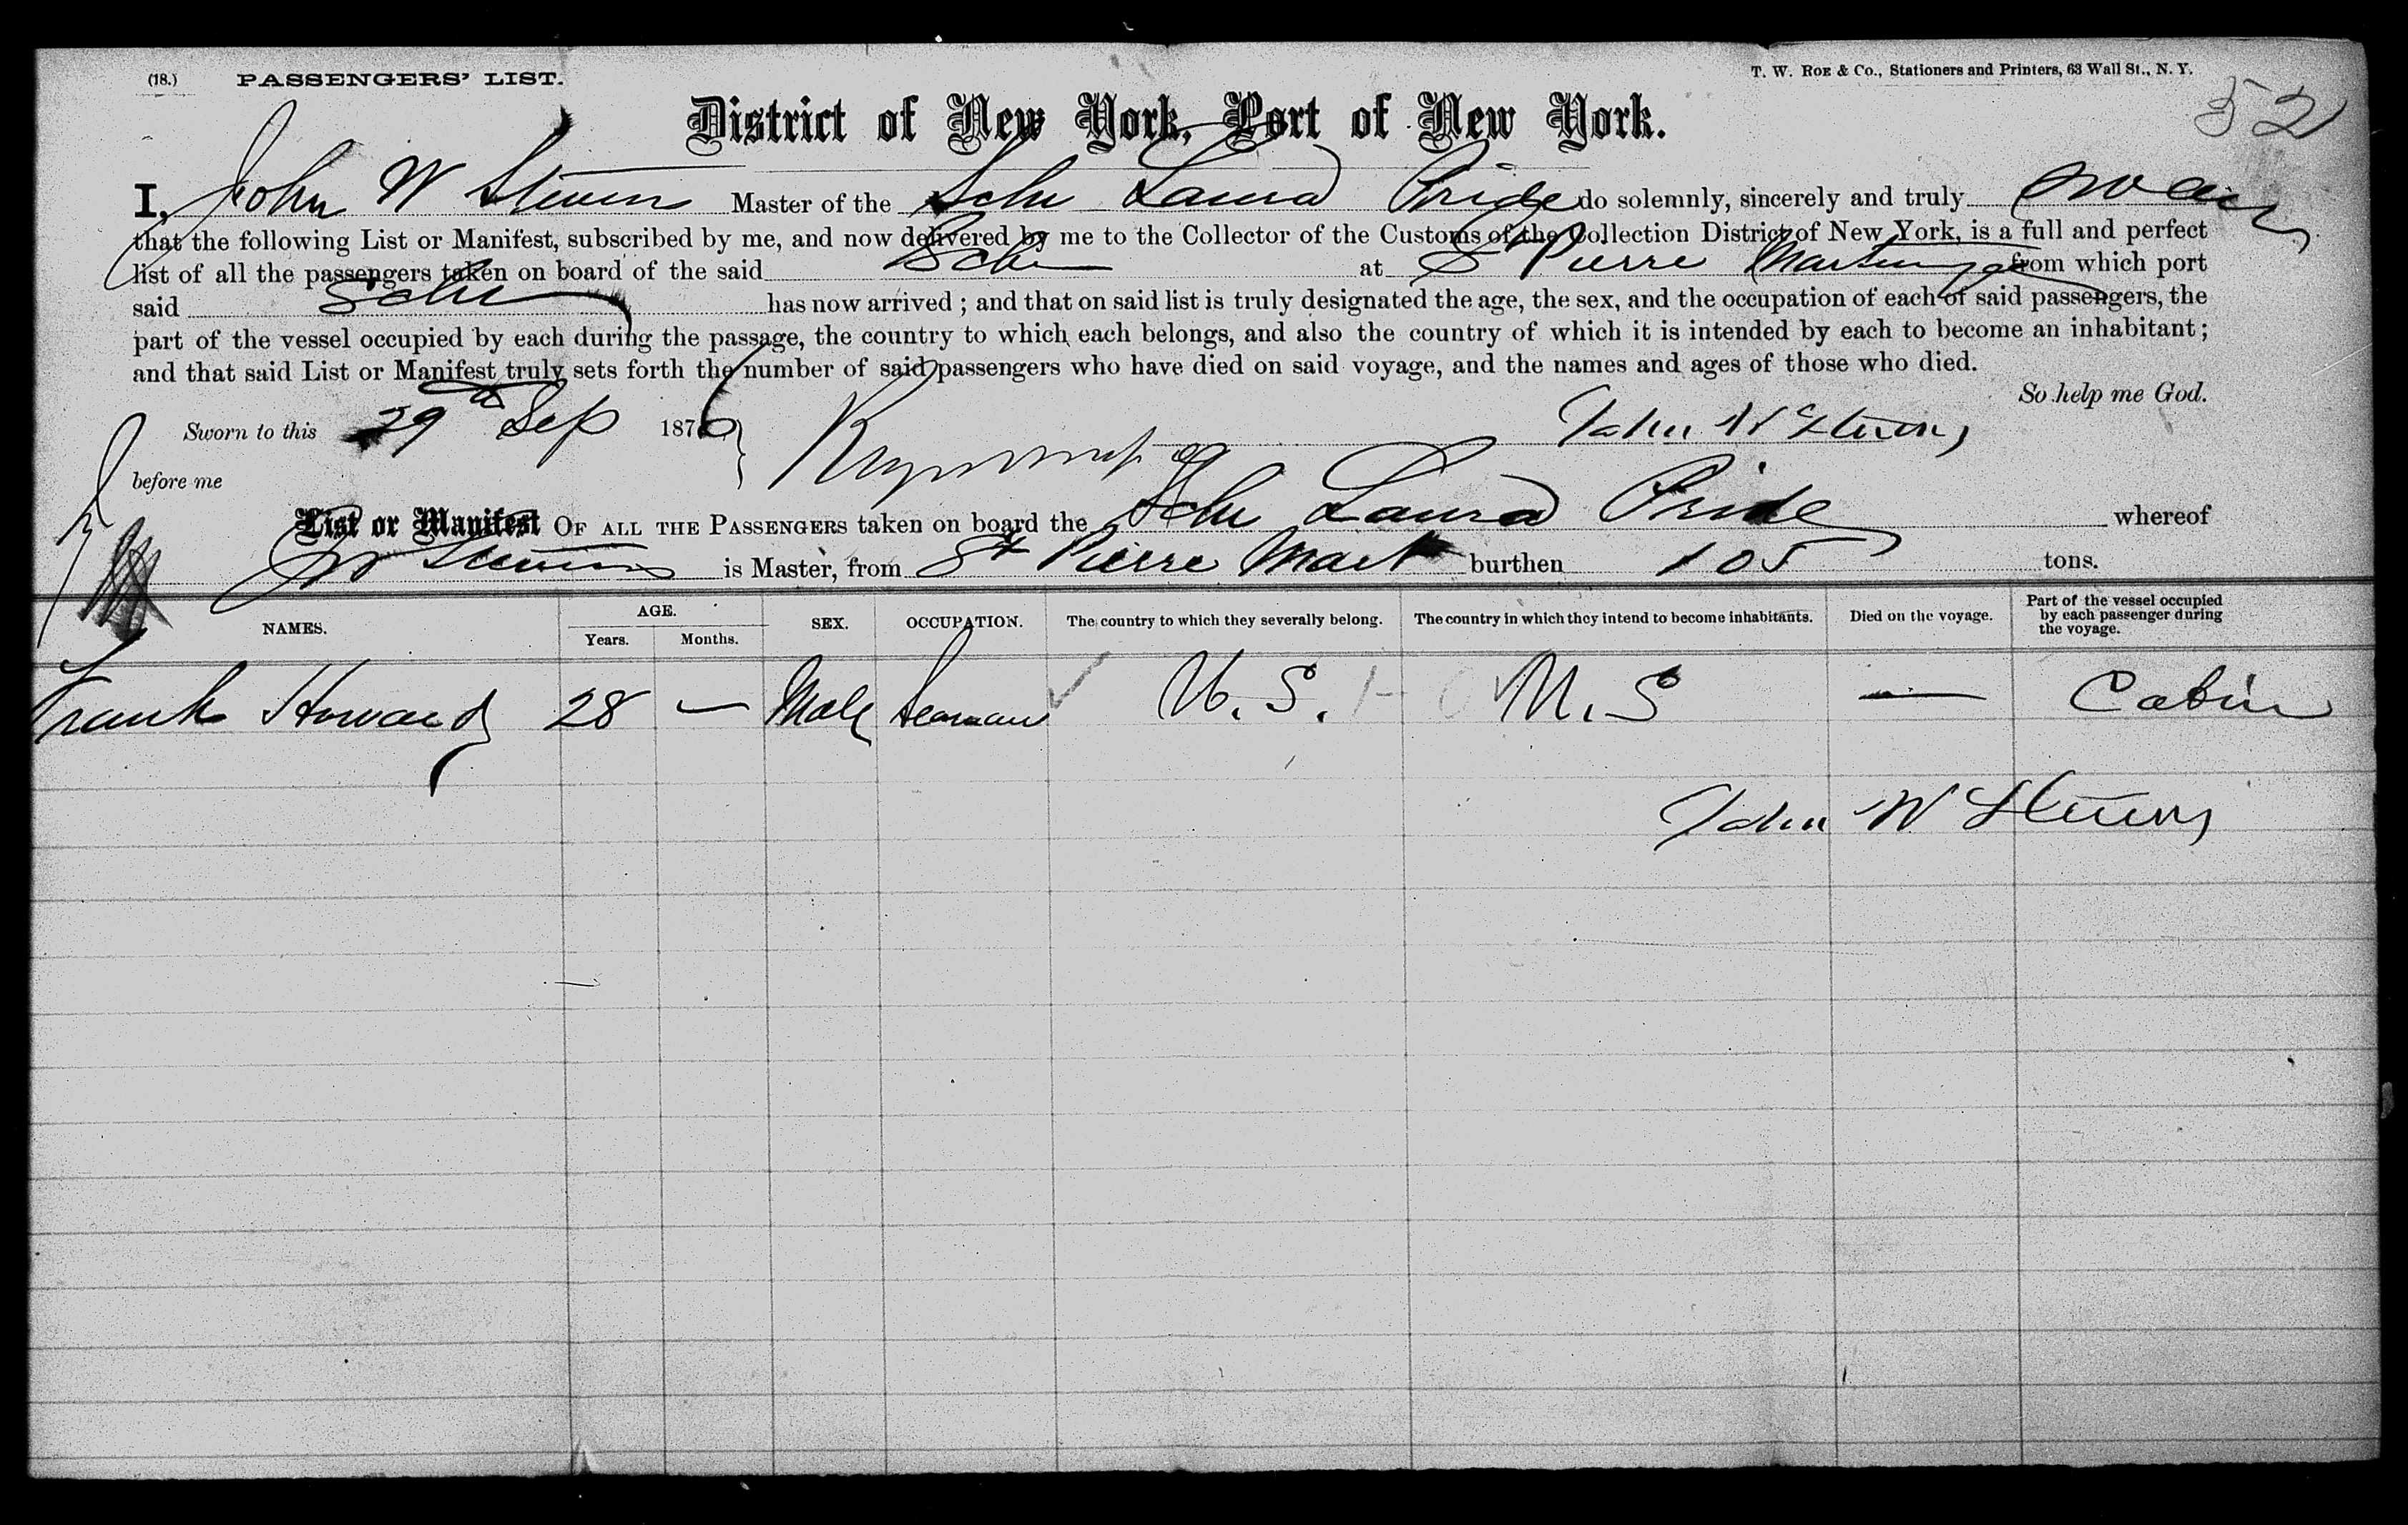 (18.) PASSENGERS' LIST. T. W. ROE & Co., Stationers and Printers, 63 Wall St., N. Y.
52
District of New York, Port of New York.
I, John W Stevens Master of the Schr Laura Pride do solemnly, sincerely and truly swear
that the following List or Manifest, subscribed by me, and now delivered by me to the Collector of the Customs of the Collection District of New York, is a full and perfect
list of all the passengers taken on board of the said Schr at St Pierre Martinique from which port
said Schr has now arrived; and that on said list is truly designated the age, the sex, and the occupation of each of said passengers, the
part of the vessel occupied by each during the passage, the country to which each belongs, and also the country of which it is intended by each to become an inhabitant;
and that said List or Manifest truly sets forth the number of said passengers who have died on said voyage, and the names and ages of those who died.
So help me God.
Sworn to this 29th Sep 1876 John W Stevens
before me
List or Manifest OF ALL THE PASSENGERS taken on board the Schr Laura Pride whereof
JW Stevens is Master, from St Pierre Mart burthen 105 tons.
NAMES. AGE. Years. Months. SEX. OCCUPATION. The country to which they severally belong. The country in which they intend to become inhabitants. Died on the voyage. Part of the vessel occupied by each passenger during the voyage.
Frank Howard 28 — Male Seaman U.S. U.S — Cabin
John W Stevens